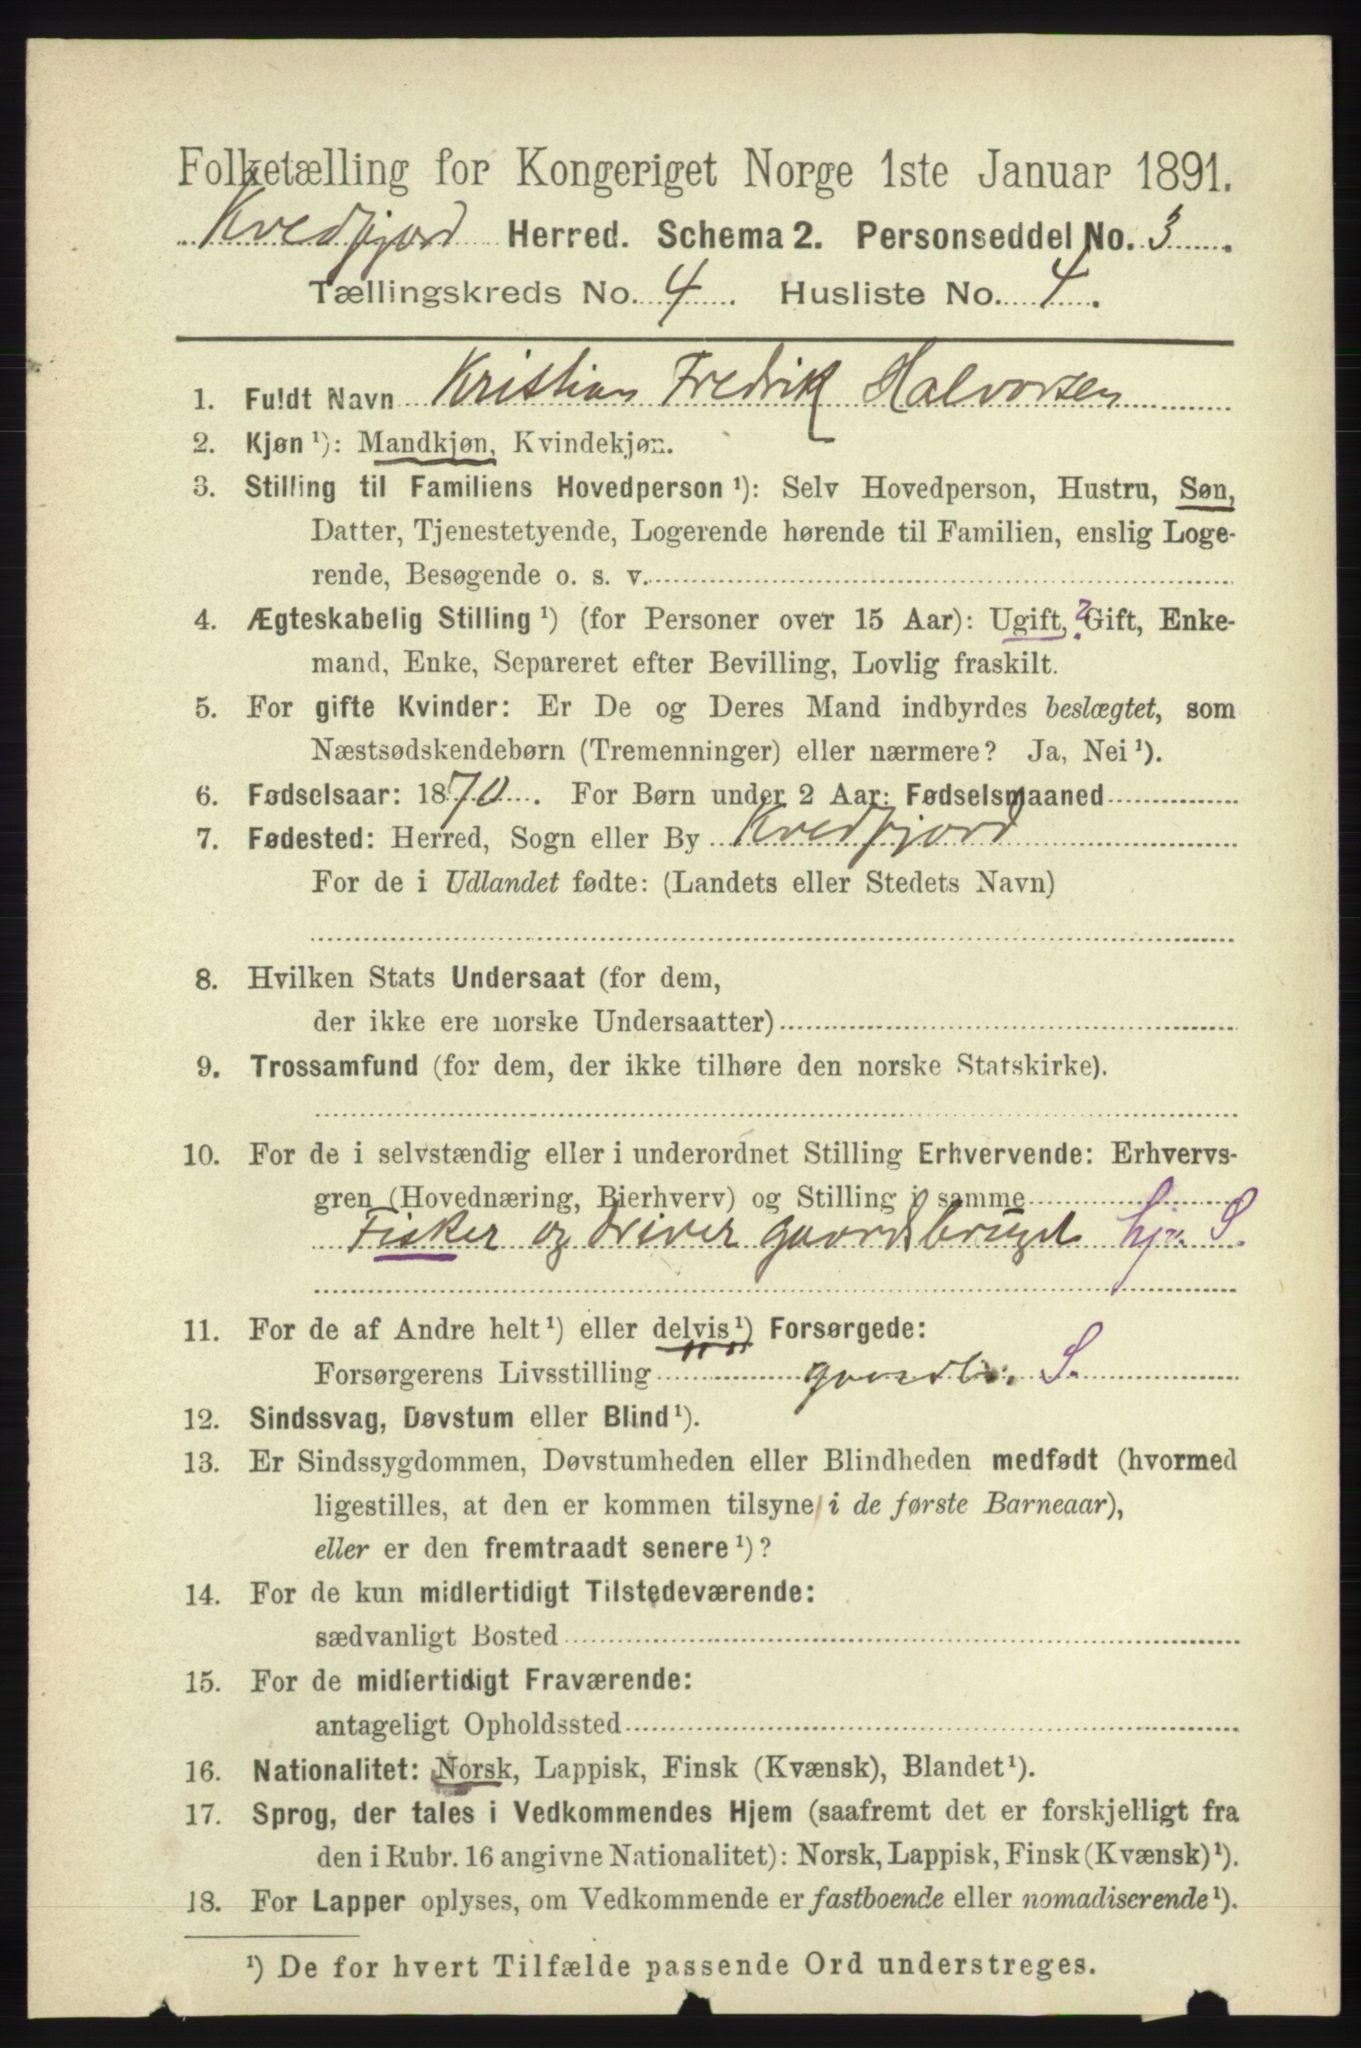 Folketælling for Kongeriget Norge 1ste Januar 1891.
Kvedfjord Herred. Schema 2. Personseddel No. 3.
Tællingskreds No. 4. Husliste No. 4.
1. Fuldt Navn Kristian Fredrik Halvorsen
2. Kjøn ¹): Mandkjøn, Kvindekjøn.
3. Stilling til Familiens Hovedperson ¹): Selv Hovedperson, Hustru, Søn,
Datter, Tjenestetyende, Logerende hørende til Familien, enslig Loge-
rende, Besøgende o. s. v.
4. Ægteskabelig Stilling ¹) (for Personer over 15 Aar): Ugift, ? Gift, Enke-
mand, Enke, Separeret efter Bevilling, Lovlig fraskilt.
5. For gifte Kvinder: Er De og Deres Mand indbyrdes beslægtet, som
Næstsødskendebørn (Tremenninger) eller nærmere? Ja, Nei ¹).
6. Fødselsaar: 1870. For Børn under 2 Aar: Fødselsmaaned
7. Fødested: Herred, Sogn eller By Kvedfjord
For de i Udlandet fødte: (Landets eller Stedets Navn)
8. Hvilken Stats Undersaat (for dem,
der ikke ere norske Undersaatter)
9. Trossamfund (for dem, der ikke tilhøre den norske Statskirke).
10. For de i selvstændig eller i underordnet Stilling Erhvervende: Erhvervs-
gren (Hovednæring, Bierhverv) og Stilling i samme
Fisker og driver gaardsbruget hjv. S.
11. For de af Andre helt ¹) eller delvis ¹) Forsørgede:
Forsørgerens Livsstilling gaardbr. S.
12. Sindssvag, Døvstum eller Blind ¹).
13. Er Sindssygdommen, Døvstumheden eller Blindheden medfødt (hvormed
ligestilles, at den er kommen tilsyne i de første Barneaar),
eller er den fremtraadt senere ¹)?
14. For de kun midlertidigt Tilstedeværende:
sædvanligt Bosted
15. For de midlertidigt Fraværende:
antageligt Opholdssted
16. Nationalitet: Norsk, Lappisk, Finsk (Kvænsk), Blandet ¹).
17. Sprog, der tales i Vedkommendes Hjem (saafremt det er forskjelligt fra
den i Rubr. 16 angivne Nationalitet): Norsk, Lappisk, Finsk (Kvænsk) ¹).
18. For Lapper oplyses, om Vedkommende er fastboende eller nomadiserende ¹).
¹) De for hvert Tilfælde passende Ord understreges.